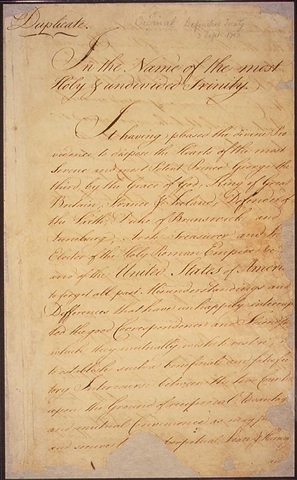 Duplicate.
Definitive Treaty
In the Name of the most
Holy & undivided Trinity.
It having pleased the Divine Pro
vidence to dispose the Hearts of the most
Serene and most Potent Prince George the
third, by the Grace of God, King of Great
Britain, France & Ireland, Defender of
the Faith, Duke of Brunswick and
Lunebourg, Arch Treasurer and
Elector of the Holy Roman Empire &c
and of the United States of America
to forget all past Misunderstandings and
Differences that have unhappily interrup
ted the good Correspondence and Friendship
which they mutually wish to restore;
to establish such a beneficial and satisfac
tory Intercourse between the two Count
upon the Ground of reciprocal Advantages
and mutual Convenience as may
and secure perpetual Peace & Harmony